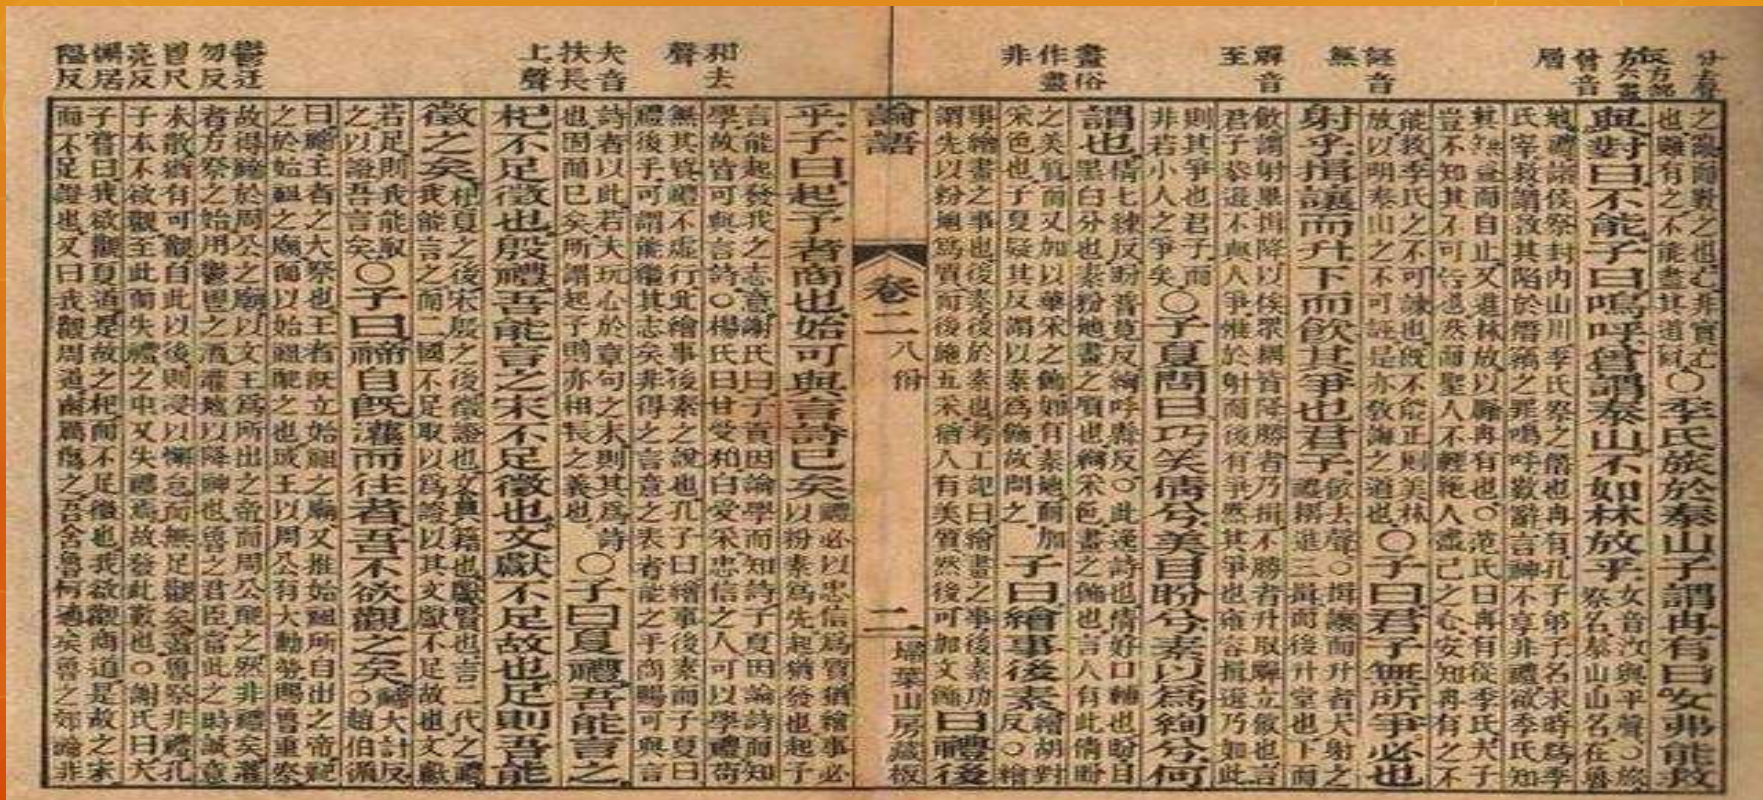 分去聲
旅方部六畫
曾音層
誣音無
解音至
畫俗作畫非
之辭而對之也亡非實亡
也雖有之不能盡其道爾
○季氏旅於泰山子謂冉有曰女弗能救
與對曰不能子曰嗚呼曾謂泰山不如林放乎
女音汝與平聲○旅
祭名泰山山名在魯
地禮諸侯祭封內山川季氏祭之僭也冉有孔子弟子名求時爲季
氏宰救謂救其陷於僭竊之罪嗚呼歎辭言神不享非禮欲季氏知
其無益而自止又進林放以厲冉有也○范氏曰冉有從季氏夫子
豈不知其不可告也然而聖人不輕絶人盡己之心安知冉有之不
能救季氏之不可諫也旣不能正則美林
放以明泰山之不可誣是亦敎誨之道也
○子曰君子無所爭必也
射乎揖讓而升下而飮其爭也君子
飮去聲○揖讓而升者大射之
禮耦進三揖而後升堂也下而
飮謂射畢揖降以俟眾耦皆降勝者乃揖不勝者升取觶立飮也言
君子恭遜不與人爭惟於射而後有爭然其爭也雍容揖遜乃如此
則其爭也君子而
非若小人之爭矣
○子夏問曰巧笑倩兮美目盼兮素以爲絢兮何
謂也
倩七練反盼普莧反絢呼縣反○此逸詩也倩好口輔也盼目
黑白分也素粉地畫之質也絢采色畫之飾也言人有此倩盼
之美質而又加以華采之飾如有素地而加
采色也子夏疑其反謂以素爲飾故問之
子曰繪事後素
繪胡對
反○繪
事繪畫之事也後素後於素也考工記曰繪畫之事後素功
謂先以粉地爲質而後施五采猶人有美質然後可加文飾
曰禮後
論語
卷二
八佾
二
埽葉山房藏板
和去聲
夫音扶長上聲
鬱迂勿反
乎子曰起予者商也始可與言詩已矣
禮必以忠信爲質猶繪事必
以粉素爲先起猶發也起予
言能起發我之志意謝氏曰子貢因論學而知詩子夏因論詩而知
學故皆可與言詩○楊氏曰甘受和白受采忠信之人可以學禮苟
無其質禮不虛行此繪事後素之說也孔子曰繪事後素而子夏曰
禮後乎可謂能繼其志矣非得之言意之表者能之乎商賜可與言
詩者以此若夫玩心於章句之末則其爲詩
也固而已矣所謂起予則亦相長之義也
○子曰夏禮吾能言之
杞不足徵也殷禮吾能言之宋不足徵也文獻不足故也足則吾能
徵之矣
杞夏之後宋殷之後徵證也文典籍也獻賢也言二代之禮
我能言之而二國不足取以爲證以其文獻不足故也文獻
若足則我能取
之以證吾言矣
○子曰禘自旣灌而往者吾不欲觀之矣
禘大計反
○趙伯循
曰禘王者之大祭也王者旣立始祖之廟又推始祖所自出之帝祀
之於始祖之廟而以始祖配之也成王以周公有大勳勞賜魯重祭
故得禘於周公之廟以文王爲所出之帝而周公配之然非禮矣灌
者方祭之始用鬱鬯之酒灌地以降神也魯之君臣當此之時誠意
未散猶有可觀自此以後則浸以懈怠而無足觀矣蓋魯祭非禮孔
子本不欲觀至此而失禮之中又失禮焉故發此歎也○謝氏曰夫
子嘗曰我欲觀夏道是故之杞而不足徵也我欲觀商道是故之宋
而不足證也又曰我觀周道幽厲傷之吾舍魯何適矣魯之郊禘非